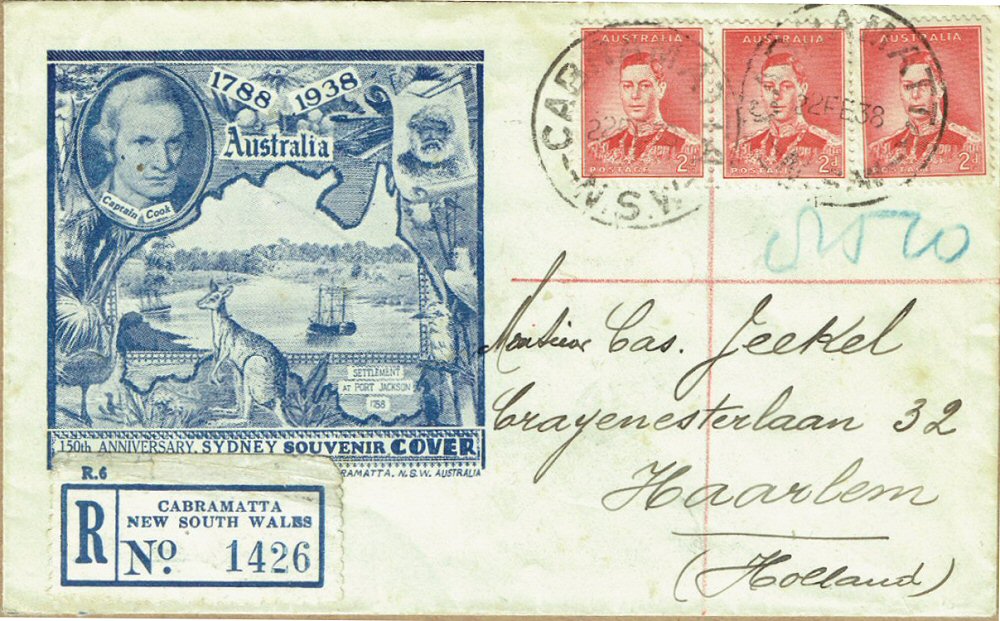 1788 1938
Australia
Captain Cook
SETTLEMENT
AT PORT JACKSON
1788
150th ANNIVERSARY. SYDNEY SOUVENIR COVER
RAMATTA, N.S.W. AUSTRALIA
R.6
R
CABRAMATTA
NEW SOUTH WALES
No. 1426
AUSTRALIA
POSTAGE 2d
AUSTRALIA
POSTAGE 2d
AUSTRALIA
POSTAGE 2d
N.S.W.
22FE38
Monsieur Cas. Jeekel
Crayenesterlaan 32
Haarlem
(Holland)